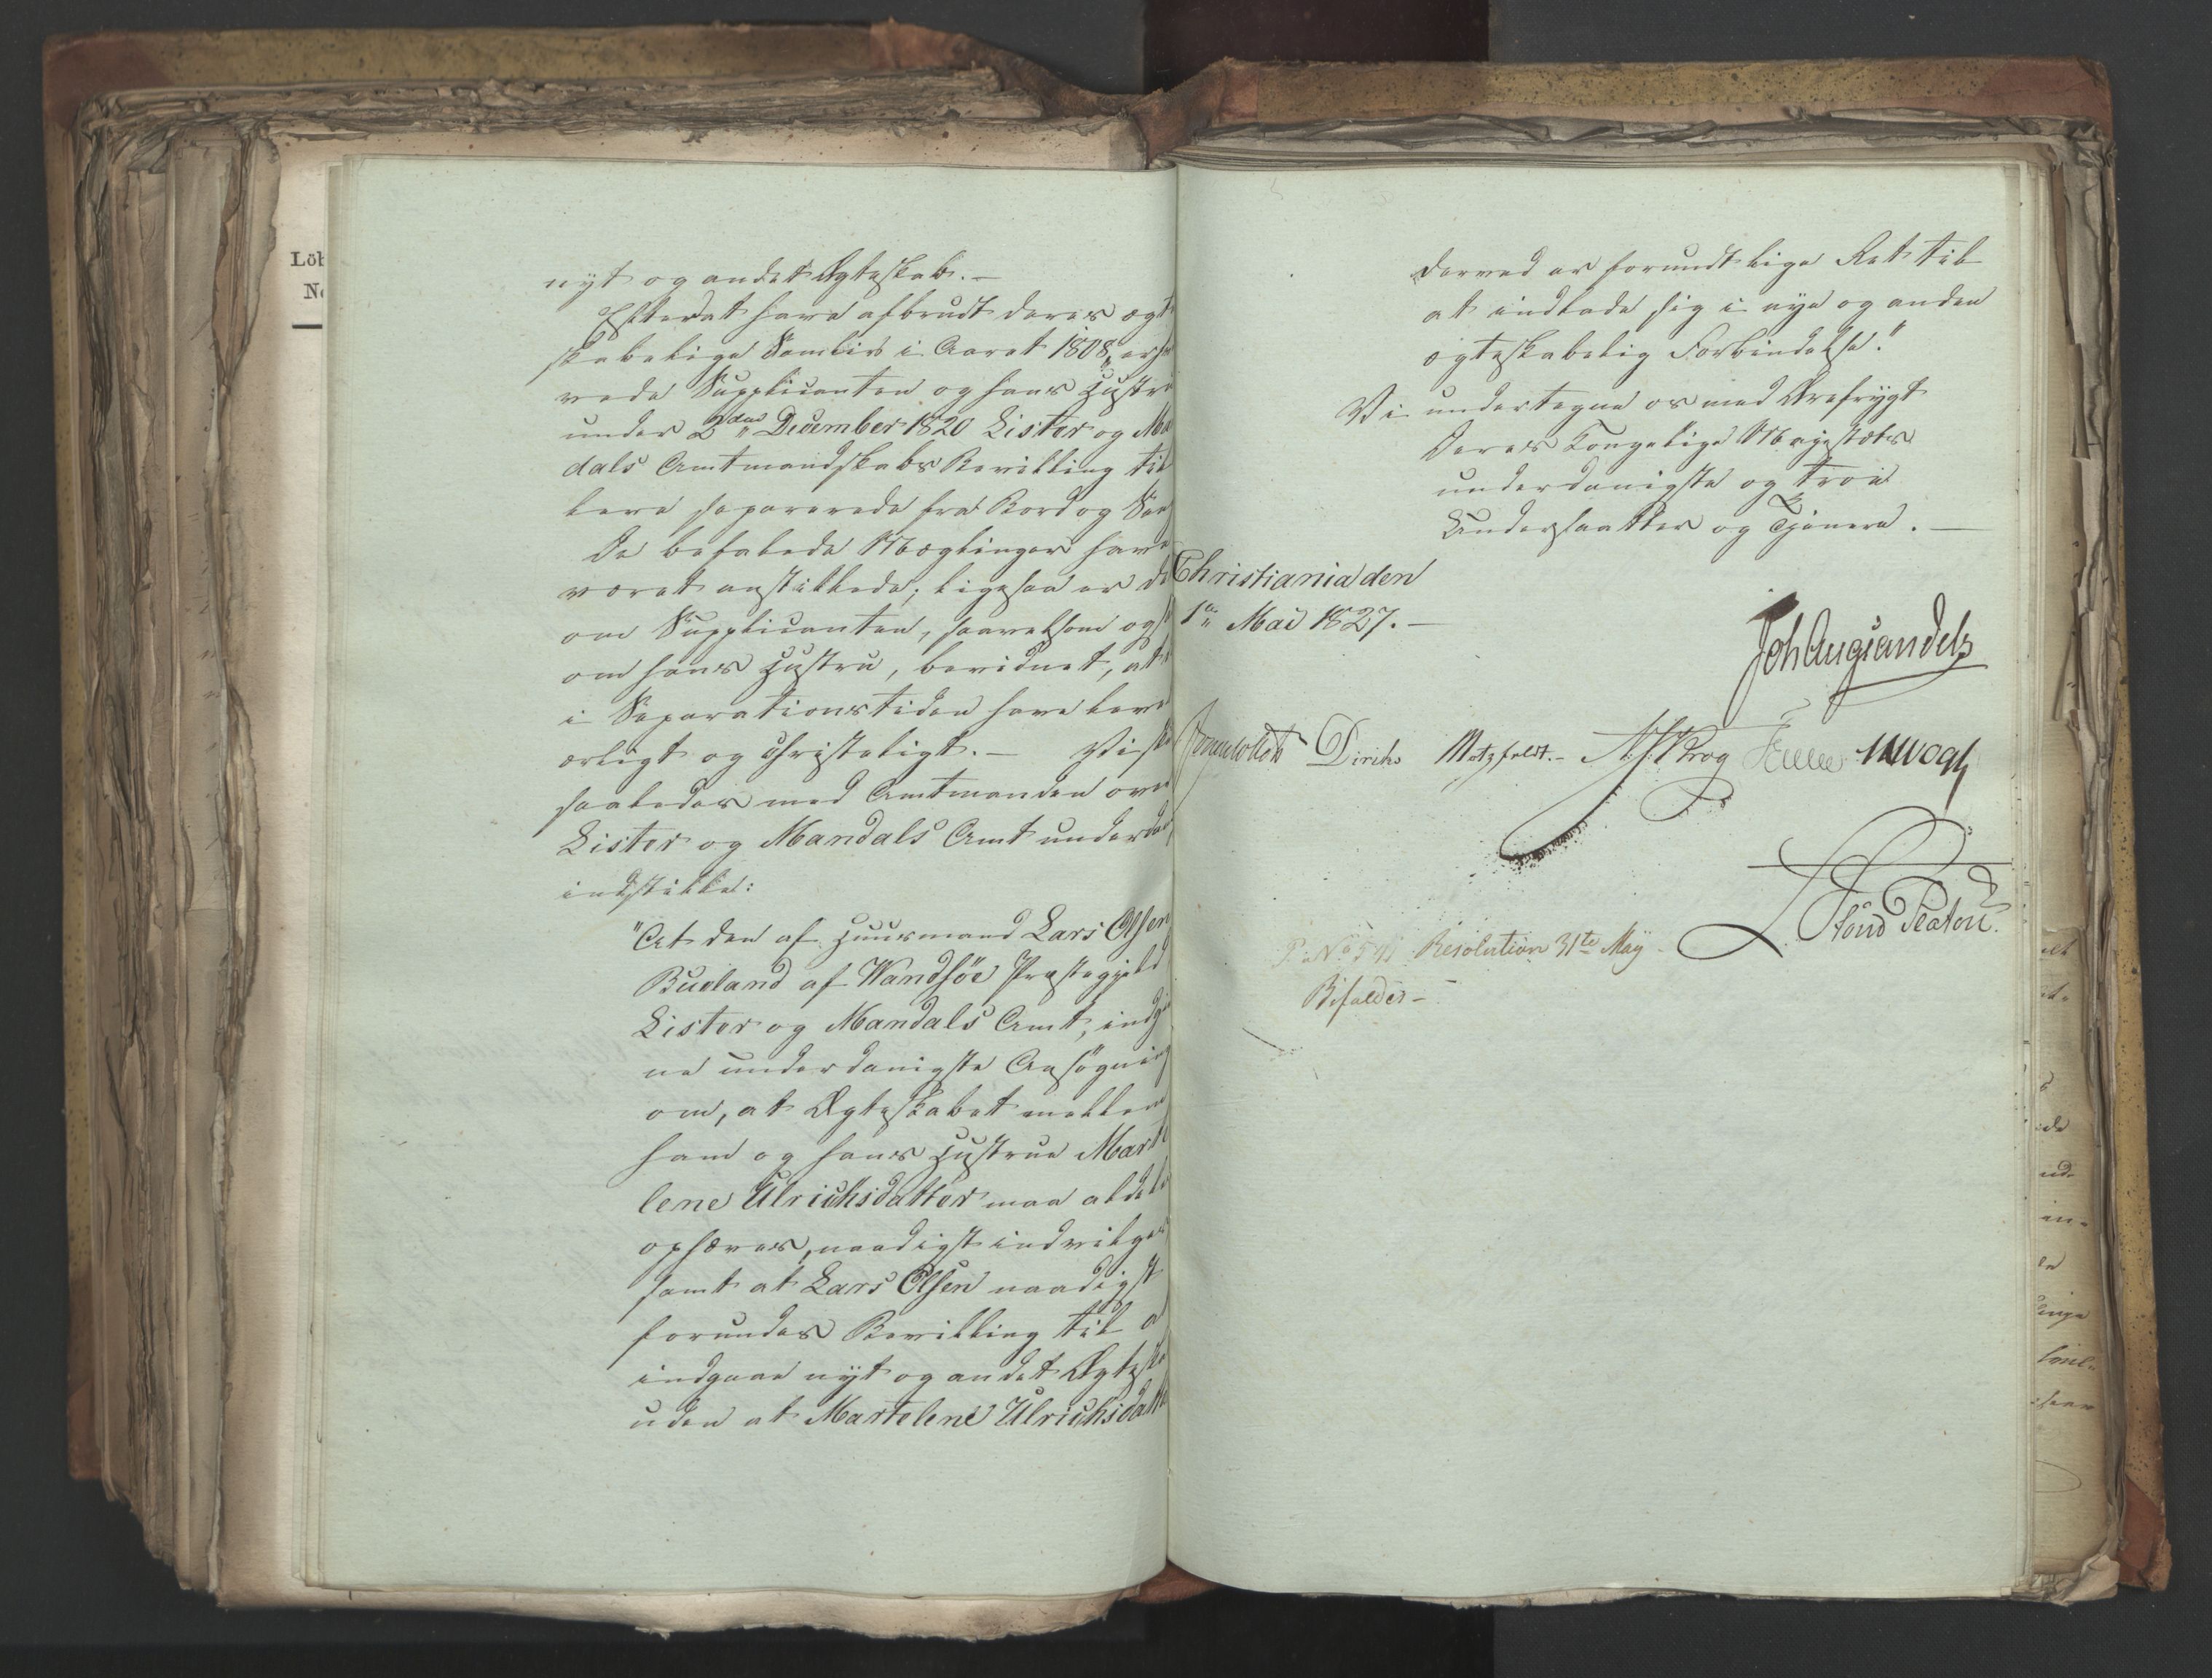 Löb
No
nyt og andet Ægteskab. –
Efterat have afbrudt deres ægte
skabelige Samliv i Aaret 1808, er
vede Supplicanten og hans Hustru
under 2den December 1820 Lister og Ma
dals Amtmandskabs Bevilling til
leve separerede fra Bord og Sen
De befalede Mæglinger have
været anstillede; ligesaa er de
om Supplicanten, saavelsom ogs
om hans Hustru, bevidnet, at
i Separationstiden have leve
ærligt og christeligt. – Vi sk
saaledes med Amtmanden over
Lister og Mandals Amt underda
indstille:
"At den af Huusmand Lars Olsen
Bueland af Wandsöe Præstegjeld
Lister og Mandals Amt, indgi
ne underdanigste Ansögning
om, at Ægteskabet mellem
ham og hans Hustrue Marte
lene Ulrichsdatter maa aldele
ophæves, naadigst indvilges
samt at Lars Olsen naadigst
forundes Bevilling til a
indgaae nyt og andet Ægteska
uden at Martelene Ulrichsdatte
derved er forundt lige Ret til
at indlade sig i nye og anden
ægteskabelig Forbindelse."
Vi undertegne os med Ærefrygt
Deres Kongelige Majestæts
underdanigste og troe
Undersaatter og Tjenere. –
Christiania den
1te Mai 1827. –
Joh Aug Sandels
Sommerhielm Diriks Motzfeldt. – A. J. Krog Fasting
P. No 541 Resolution 31te May –
Bifaldes –